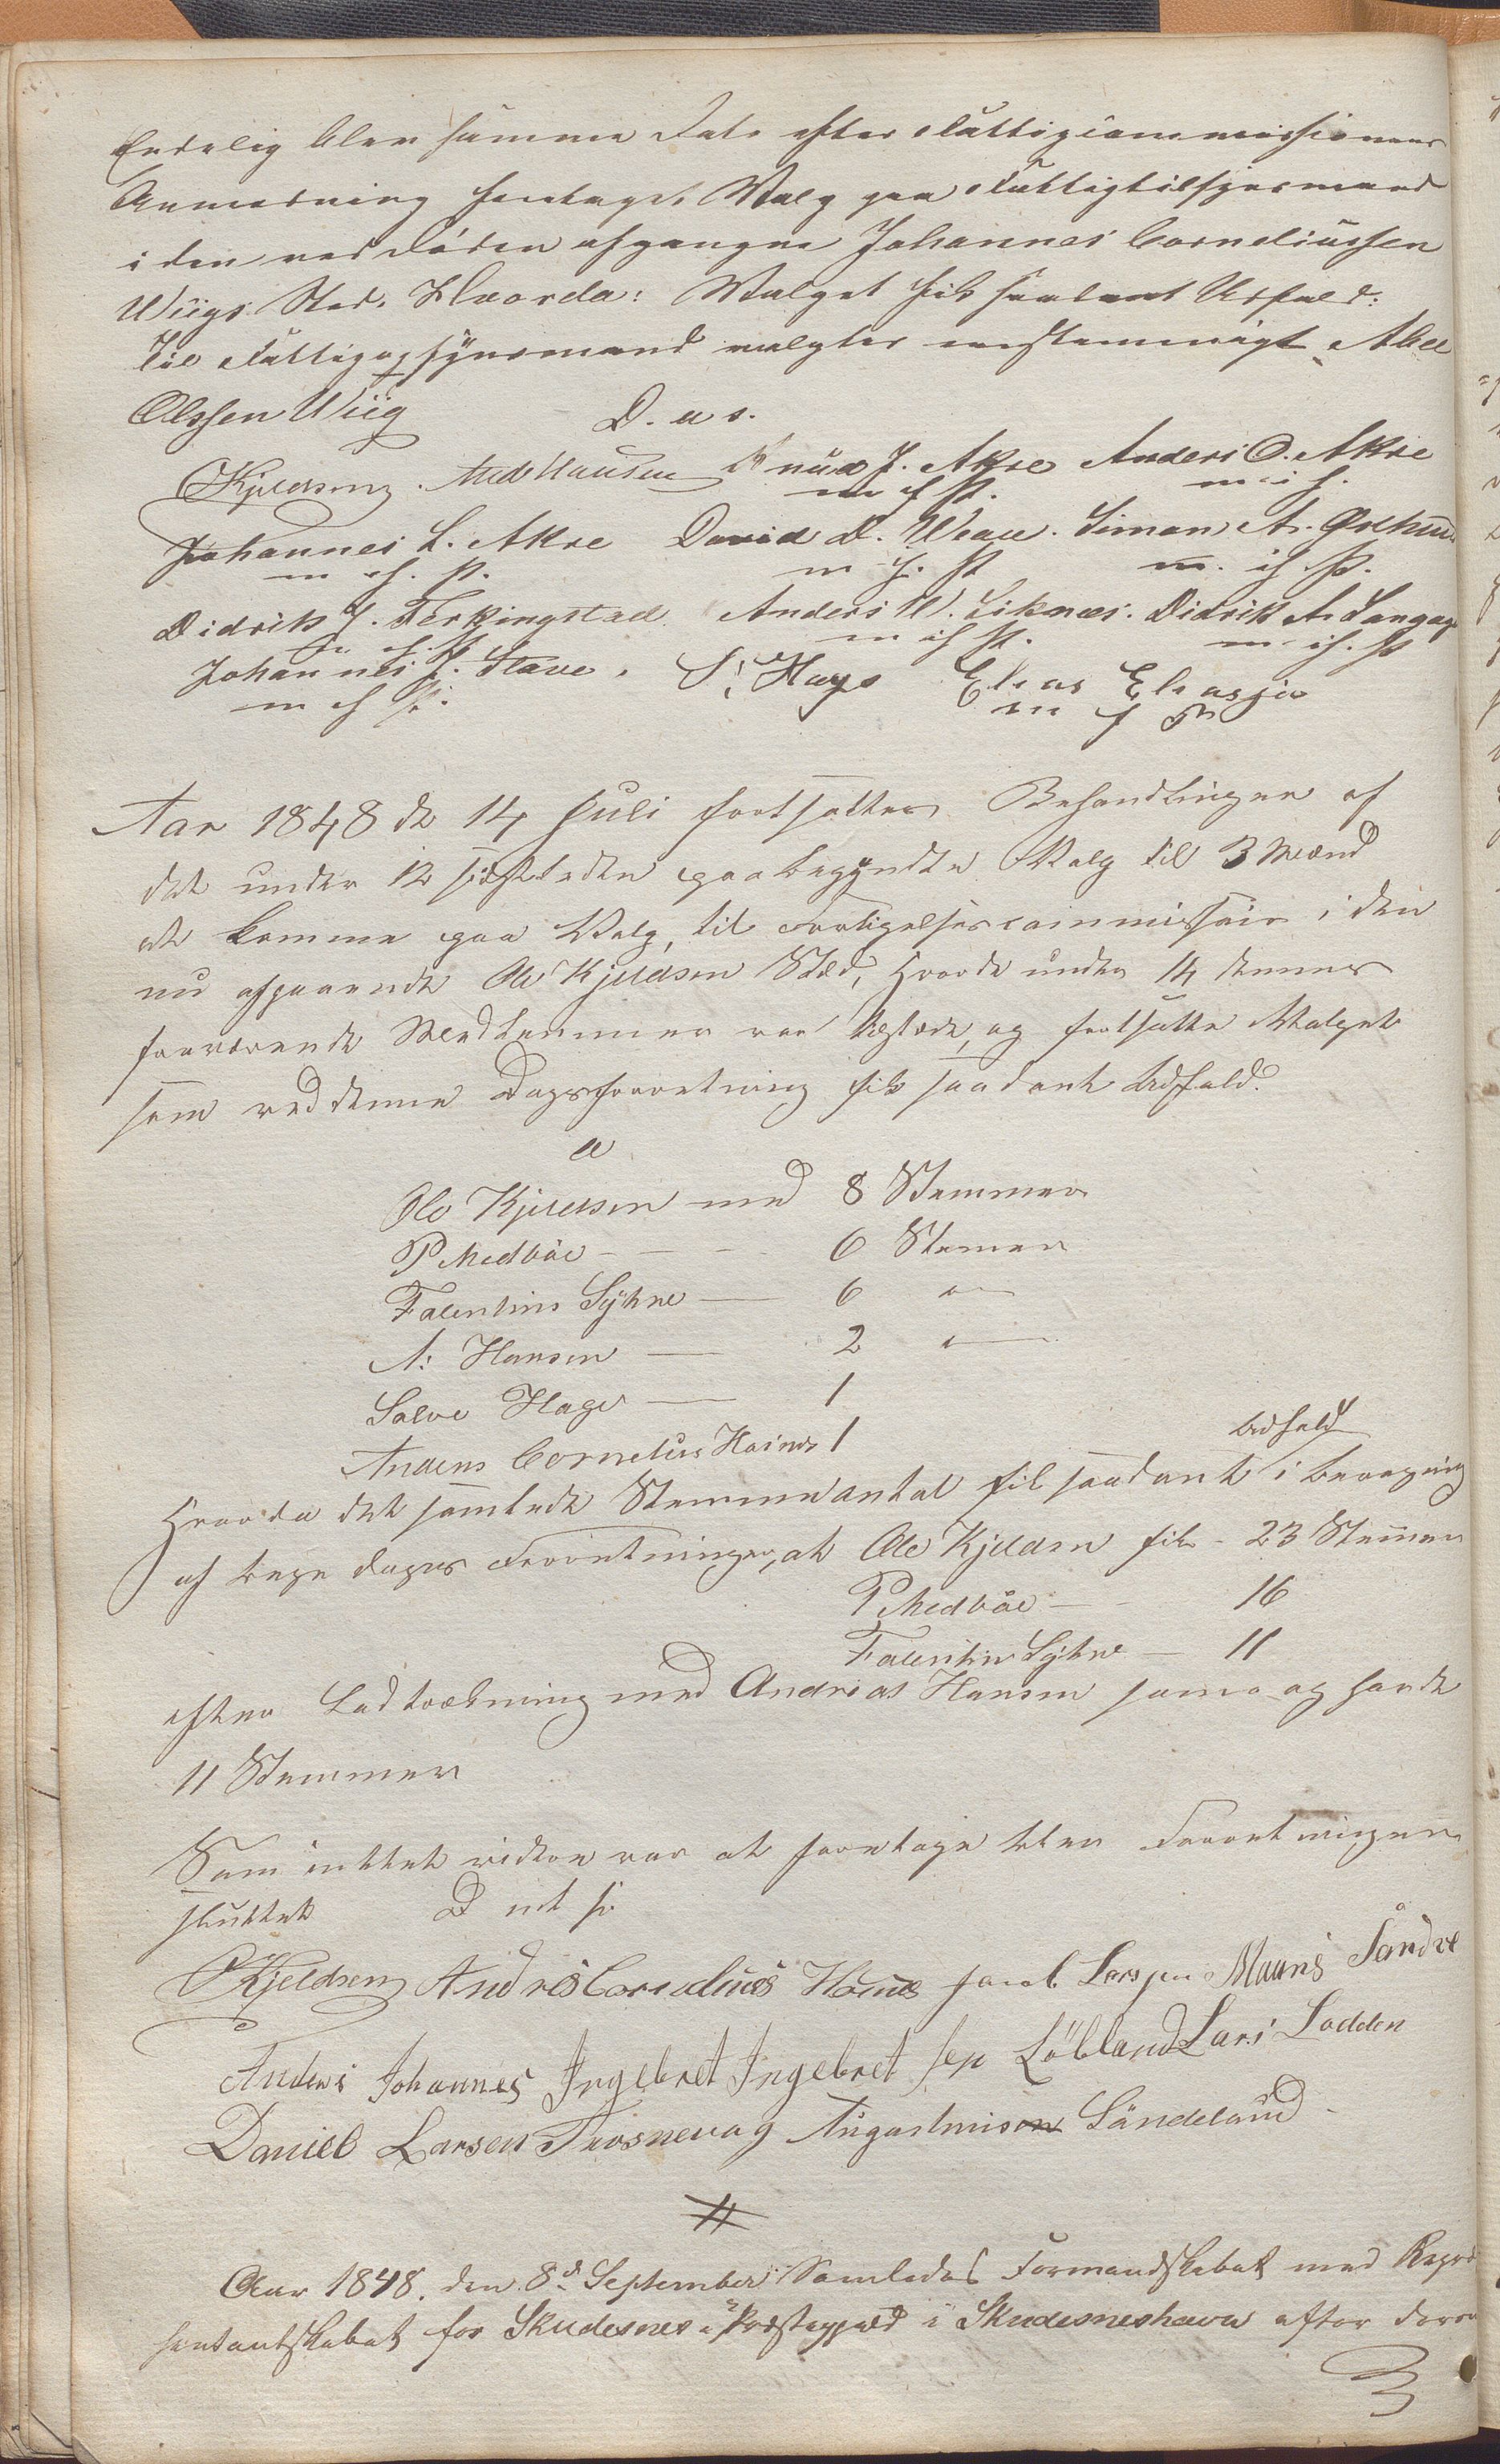 Endelig blev samme Dato efter Fattigcommissionens
Anmodning foretaget Valg paa Fattigtilsynsmand
i den ved Døden afgangne Johannes Corneliussen
Wiigs Sted. Hvorda: Valget fik saadant Udfald:
Til Fattigopsynsmand valgtes eenstemmigt Abel
Olssen Wiig D. u. s.
OKjeldseng. And Hansen Knud J. Akre Anders O. Akre
m i P. m i P.
Johannes L. Akre David D. Weae. Simon A. Østhus
m i P. m i P. m. i P.
Didrik J. Ferkingstad Anders W. Liknes. Didrik A. Langag
m i P. m i P. m i P.
Johannes J. Stave. S. Hage Elias Eliasen
m i P. m i P.
Aar 1848 d 14 Juli fortsattes Behandlingen af
det under 12 sidstleden paabegyndte Valg til 3 Mænd
at komme paa Valg, til Forligelsescommissair i den
nu afgaaende Ole Kjeldsen Sted, hvorda under 14 dennes
fraværende Medlemmer var tilstede, og fortsatte Valget
som ved denne Dagsforretning fik saadant Udfald.
a
Ole Kjeldsen med 8 Stemmer
P Medbøe - - - 6 Stemer
Falentins Syhne — 6 —
A: Hansen — 2 —
Salve Hage — 1
Anders Cornelius Haines 1
Udfald
Hvorda det samlede Stemmeantal fik saadant i beregning
af begge dages Forretninger, at Ole Kjeldsen fik - 23 Stemmer
P Medbøe — - 16
Falentin Syhne — 11
efter Lodtrækning med Andreas Hansen som og havde
11 Stemmer
Som inttet videre var at foretage blev Forretningen
sluttet D ut s
OKjeldseng Andres Cornelius Haines Jacob Larsen Mauns Sandve
Anders Johannes Ingebret Ingebretsen Løbland Lars Lodden
Daniel Larsen Trosnevag Augustinison Sandeland
#
Aar 1848. den 8d September Samledes Formandskabet med Repræ
sentantskabet for Skudesnes Præstegjeld i Skudesneshavn efter derom